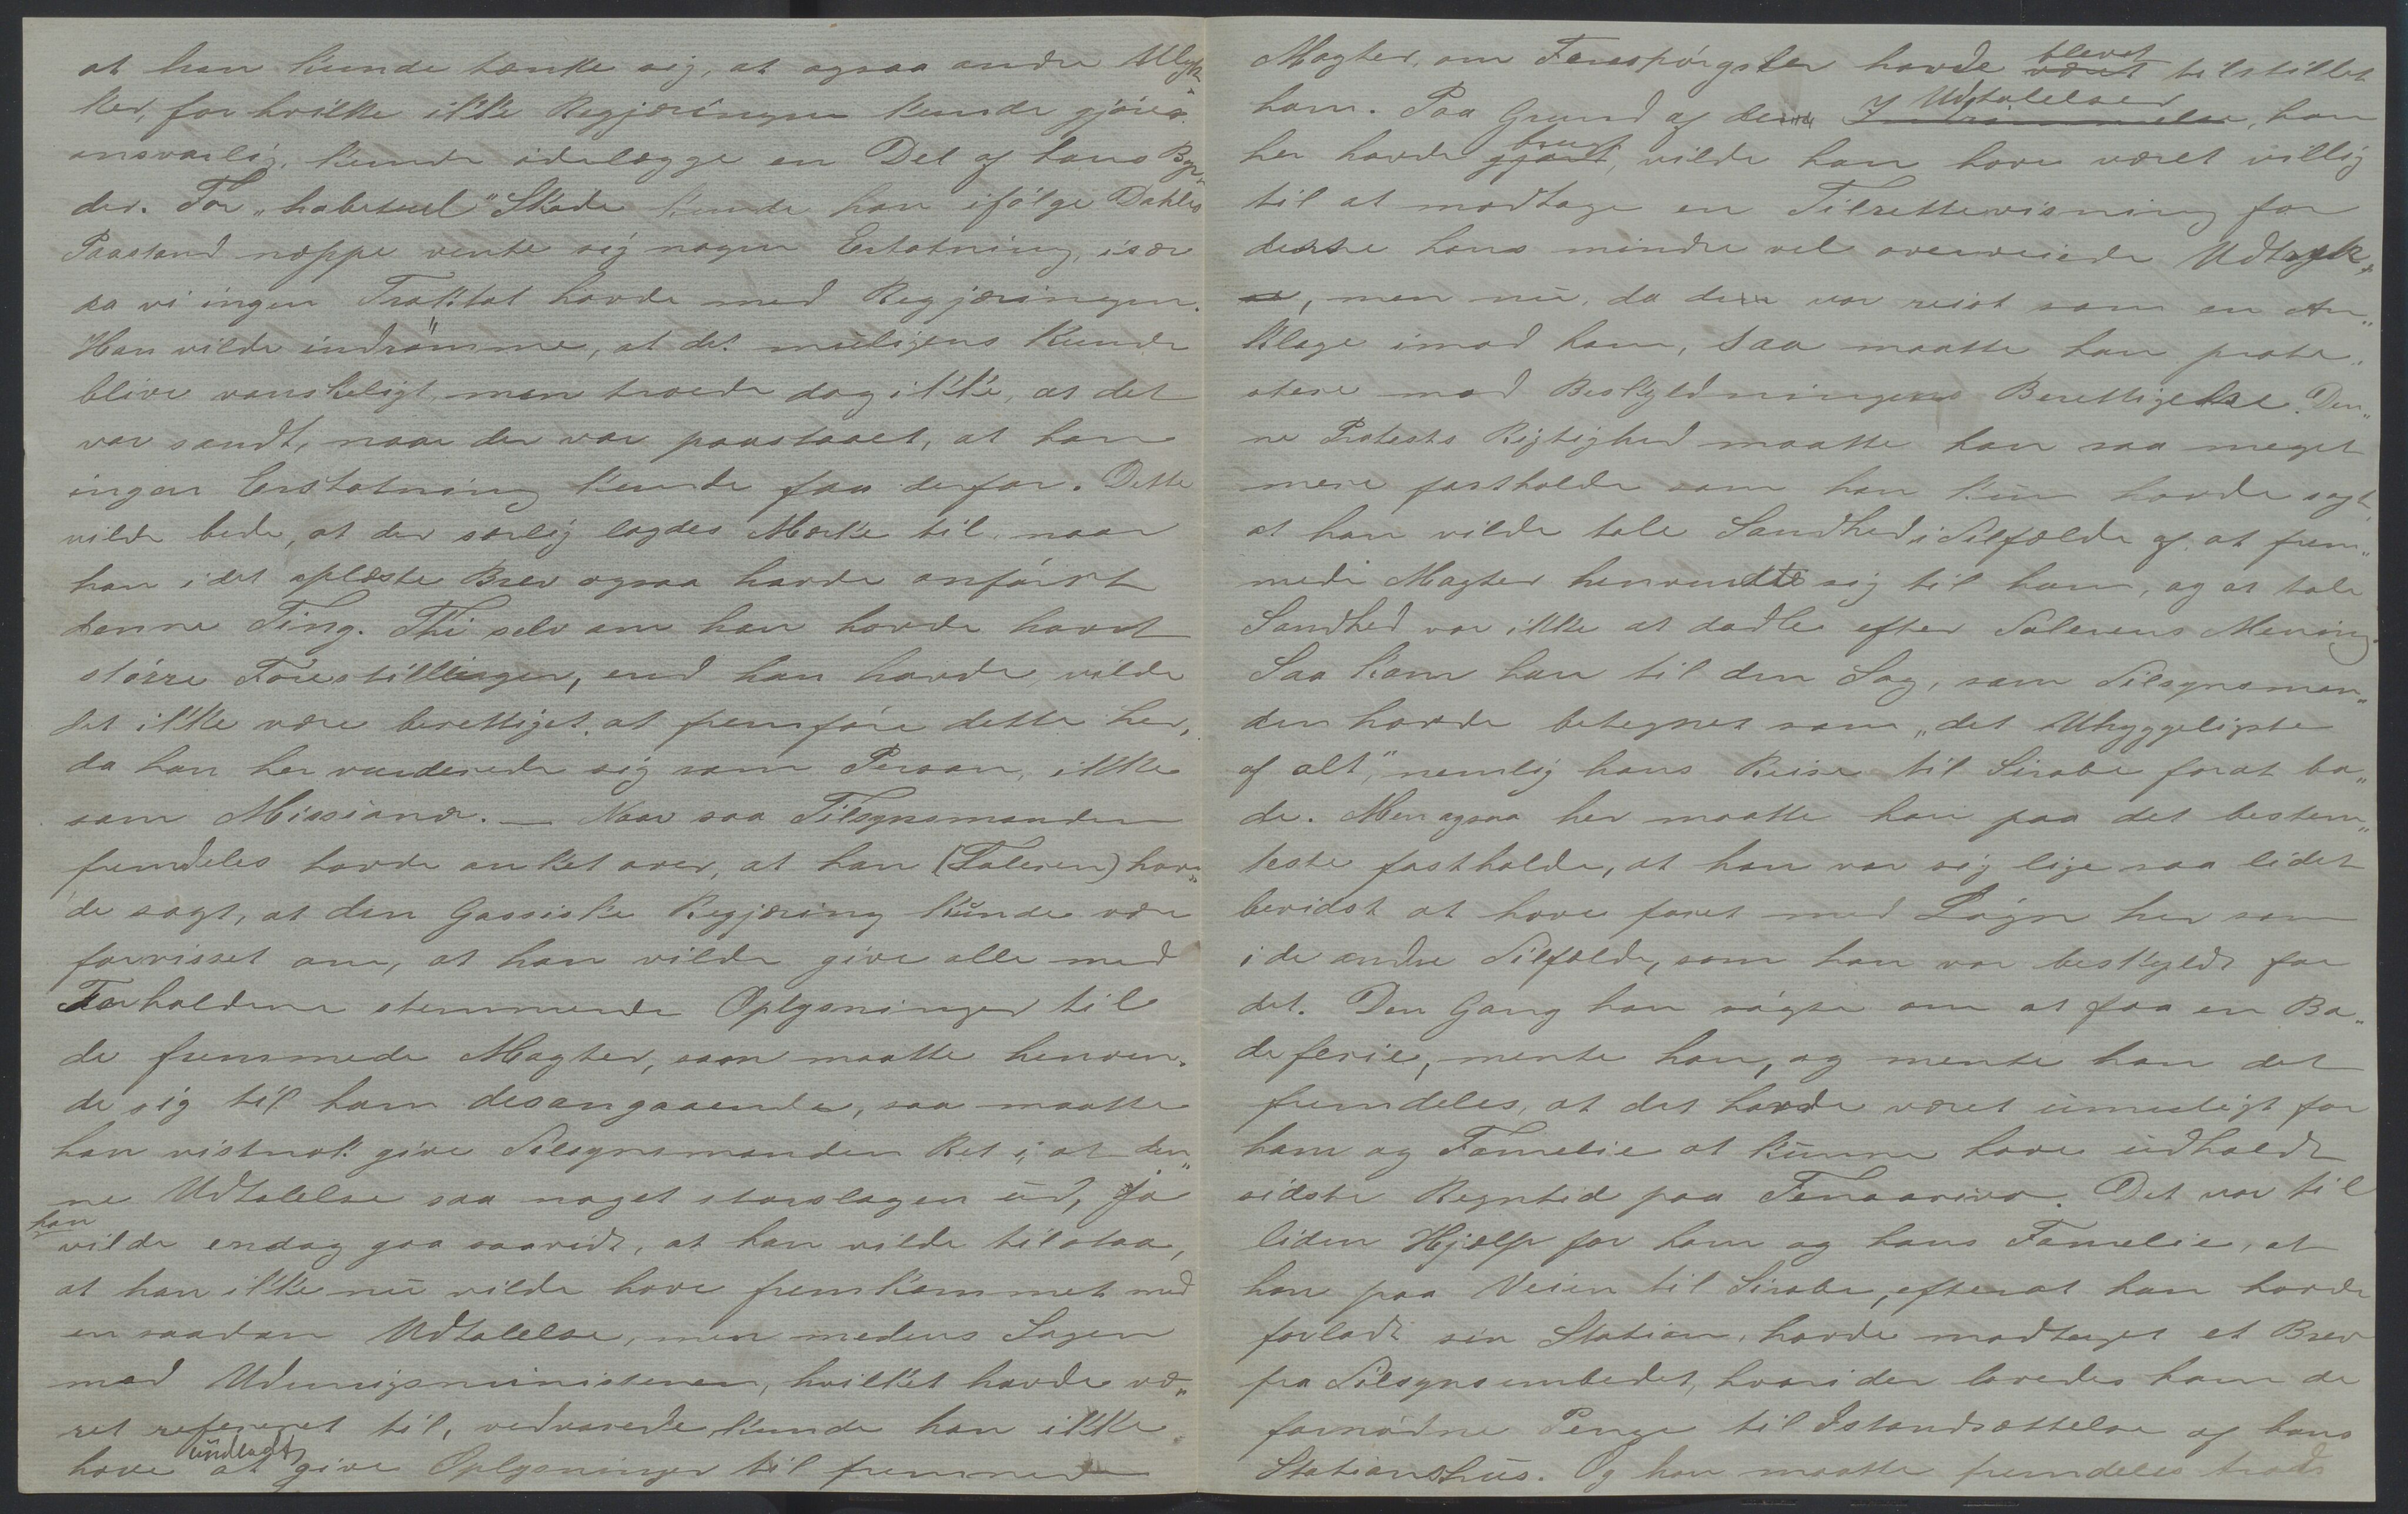 at han kunde tænke sig, at ogsaa andre Ulyk-
ker, for hvilke ikke Regjæringen kunde gjöres
ansvarlig, kunde ödelægge en Del af hans Byr
der. For „habituel“ Skade kunde han ifölge Dahles
Paastand næppe vente sig nogen Erstatning, især
da vi ingen Traktat havde med Regjæringen.
Han vilde indrömme, at det muligens kunde
blive vanskeligt, men troede dog ikke, at det
var sandt, naar der var paastaaet, at han
ingen Erstatning kunde faa derfor. Dette
vilde bede, at der særlig lagdes Mærke til, naar
han i det oplæste Brev ogsaa havde anfört
denne Ting. Thi selv om han havde havt
större Forestillinger, end han havde, vilde
det ikke være berettiget, at fremföre dette her,
da han her vurderede sig som Person, ikke
som Missionær. — Naar saa Tilsynsmanden
fremdeles havde anket over, at han (Taleren) hav„
de sagt, at den Gassiske Regjæring kunde være
forvisset om, at han vilde give alle med
Forholdene stemmende Oplysninger til
de fremmede Magter, som maatte henven„
de sig til ham desangaaende, saa maatte
han vistnok give Tilsynsmanden Ret i, at den„
ne Udtalelse saa noget storslagen ud, ja
han
vilde endog gaa saavidt, at han vilde tilstaa,
at han ikke nu vilde have fremkommet med
en saadan Udtalelse, men medens Sagen
med Udenrigsministeren, hvilket havde væ„
ret refereret til, vedvarede kunde han ikke
undlagt
have at give Oplysninger til fremmede
Magter, om Forespörgsler havde været blevet tilstillet
ham. Paa Grund af denne Indrömmelse Udtalelser, han
her havde gjort brugt, vilde han have været villig
til at modtage en Tilrettevisning for
desse hans mindre vel overveiede Udtryk„
er, men nu, da den var reist som en An„
klage imod ham, saa maatte han prote„
stere mod Beskyldningens Berettigelse. Den„
ne Protests Rigtighed maatte han saa meget
mere fastholde som han kun havde sagt,
at han vilde tale Sandhed i Tilfælde af at frem„
mede Magter henvendte sig til ham, og at tale
Sandhed var ikke at dadle efter Talerens Mening.
Saa kom han til den Sag, som Tilsynsman„
den havde betegnet som „det Uhyggeligste
af alt“, nemlig hans Reise til Sirabe forat ba„
de. Men ogsaa her maatte han paa det bestem„
teste fastholde, at han var sig lige saa lidet
bevidst at have faret med Lögn her som
i de andre Tilfælde, som han var beskyldt for
det. Den Gang han sögte om at faa en Ba„
deferie, mente han, og mente han det
fremdeles, at det havde været umuligt for
ham og Familie at kunne have udholdt
sidste Regntid paa Fenoarivo. Det var til
liden Hjælp for ham og hans Familie, at
han paa Veien til Sirabe, efterat han havde
forladt sin Station, havde modtaget et Brev
fra Tilsynsembedet, hvori der lovedes ham de
fornödne Penge til Istandsættelse af hans
Stationshus. Og han maatte fremdeles trods